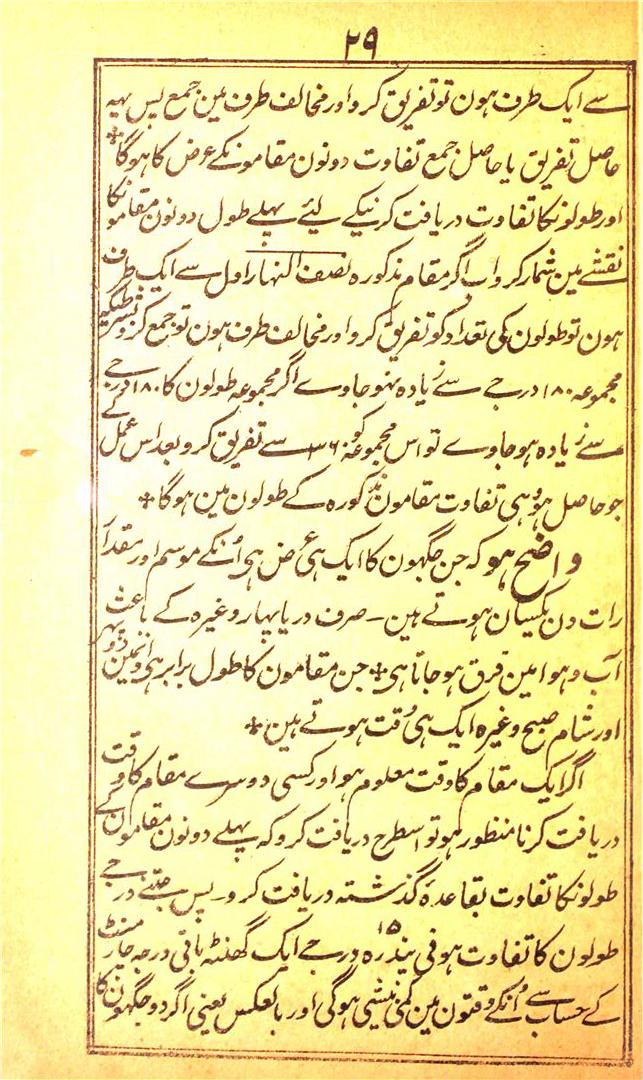 ۲۹
سے ایک طرف ہون تو تفریق کرو اور مخالف طرف مین جمع پس یہہ
حاصل تفریق یا حاصل جمع تفاوت دونون مقامونکے عرض کا ہوگا *
اور طولونکا تفاوت دریافت کرنیکے لیئے پہلے طول دونون مقامونکا
نقشے مین شمار کرو اب اگر مقام مذکورہ نصف النہار اول سے ایک طرف
ہون تو طولون کی تعداد کو تفریق کرو اور مخالف طرف ہون تو جمع کرو بشرطیکہ
مجموعہ ۱۸۰ درجے سے زیادہ نہو جاوے اگر مجموعہ طولون کا ۱۸۰ درجے
سے زیادہ ہو جاوے تو اس مجموعہ کو ۳۶۰ سے تفریق کرو بعد اس عمل کے
جو حاصل ہو وُہی تفاوت مقامون مذکورہ کے طولون مین ہوگا *
واضح ہو کہ جن جگہون کا ایک ہی عرض ہی اُنکے موسم اور مقدار
رات دن یکسان ہوتے ہین ۔ صرف دریا پہار وغیرہ کے باعث
آب و ہوا مین فرق ہو جاتا ہی * جن مقامون کا طول برابر ہی وانمین دو پہر
اور شام صبح وغیرہ ایک ہی وُقت ہوتے ہین *
اگر ایک مقام کا وقت معلوم ہو اور کسی دوسرے مقام کا وقت
دریافت کرنا منظور ہو تو اسطرح دریافت کرو کہ پہلے دونون مقامون کے
طولونکا تفاوت بقاعدہٗ گذشتہ دریافت کرو ۔ پس جتنے درجے
طولون کا تفاوت ہو فی پندرہ ۱۵ درجے ایک گھنٹہ باقی درجہ چار منٹ
کے حساب سے اُنکے وقتون مین کمی بیشی ہوگی اور بالعکس یعنی اگر دو جگہون کا